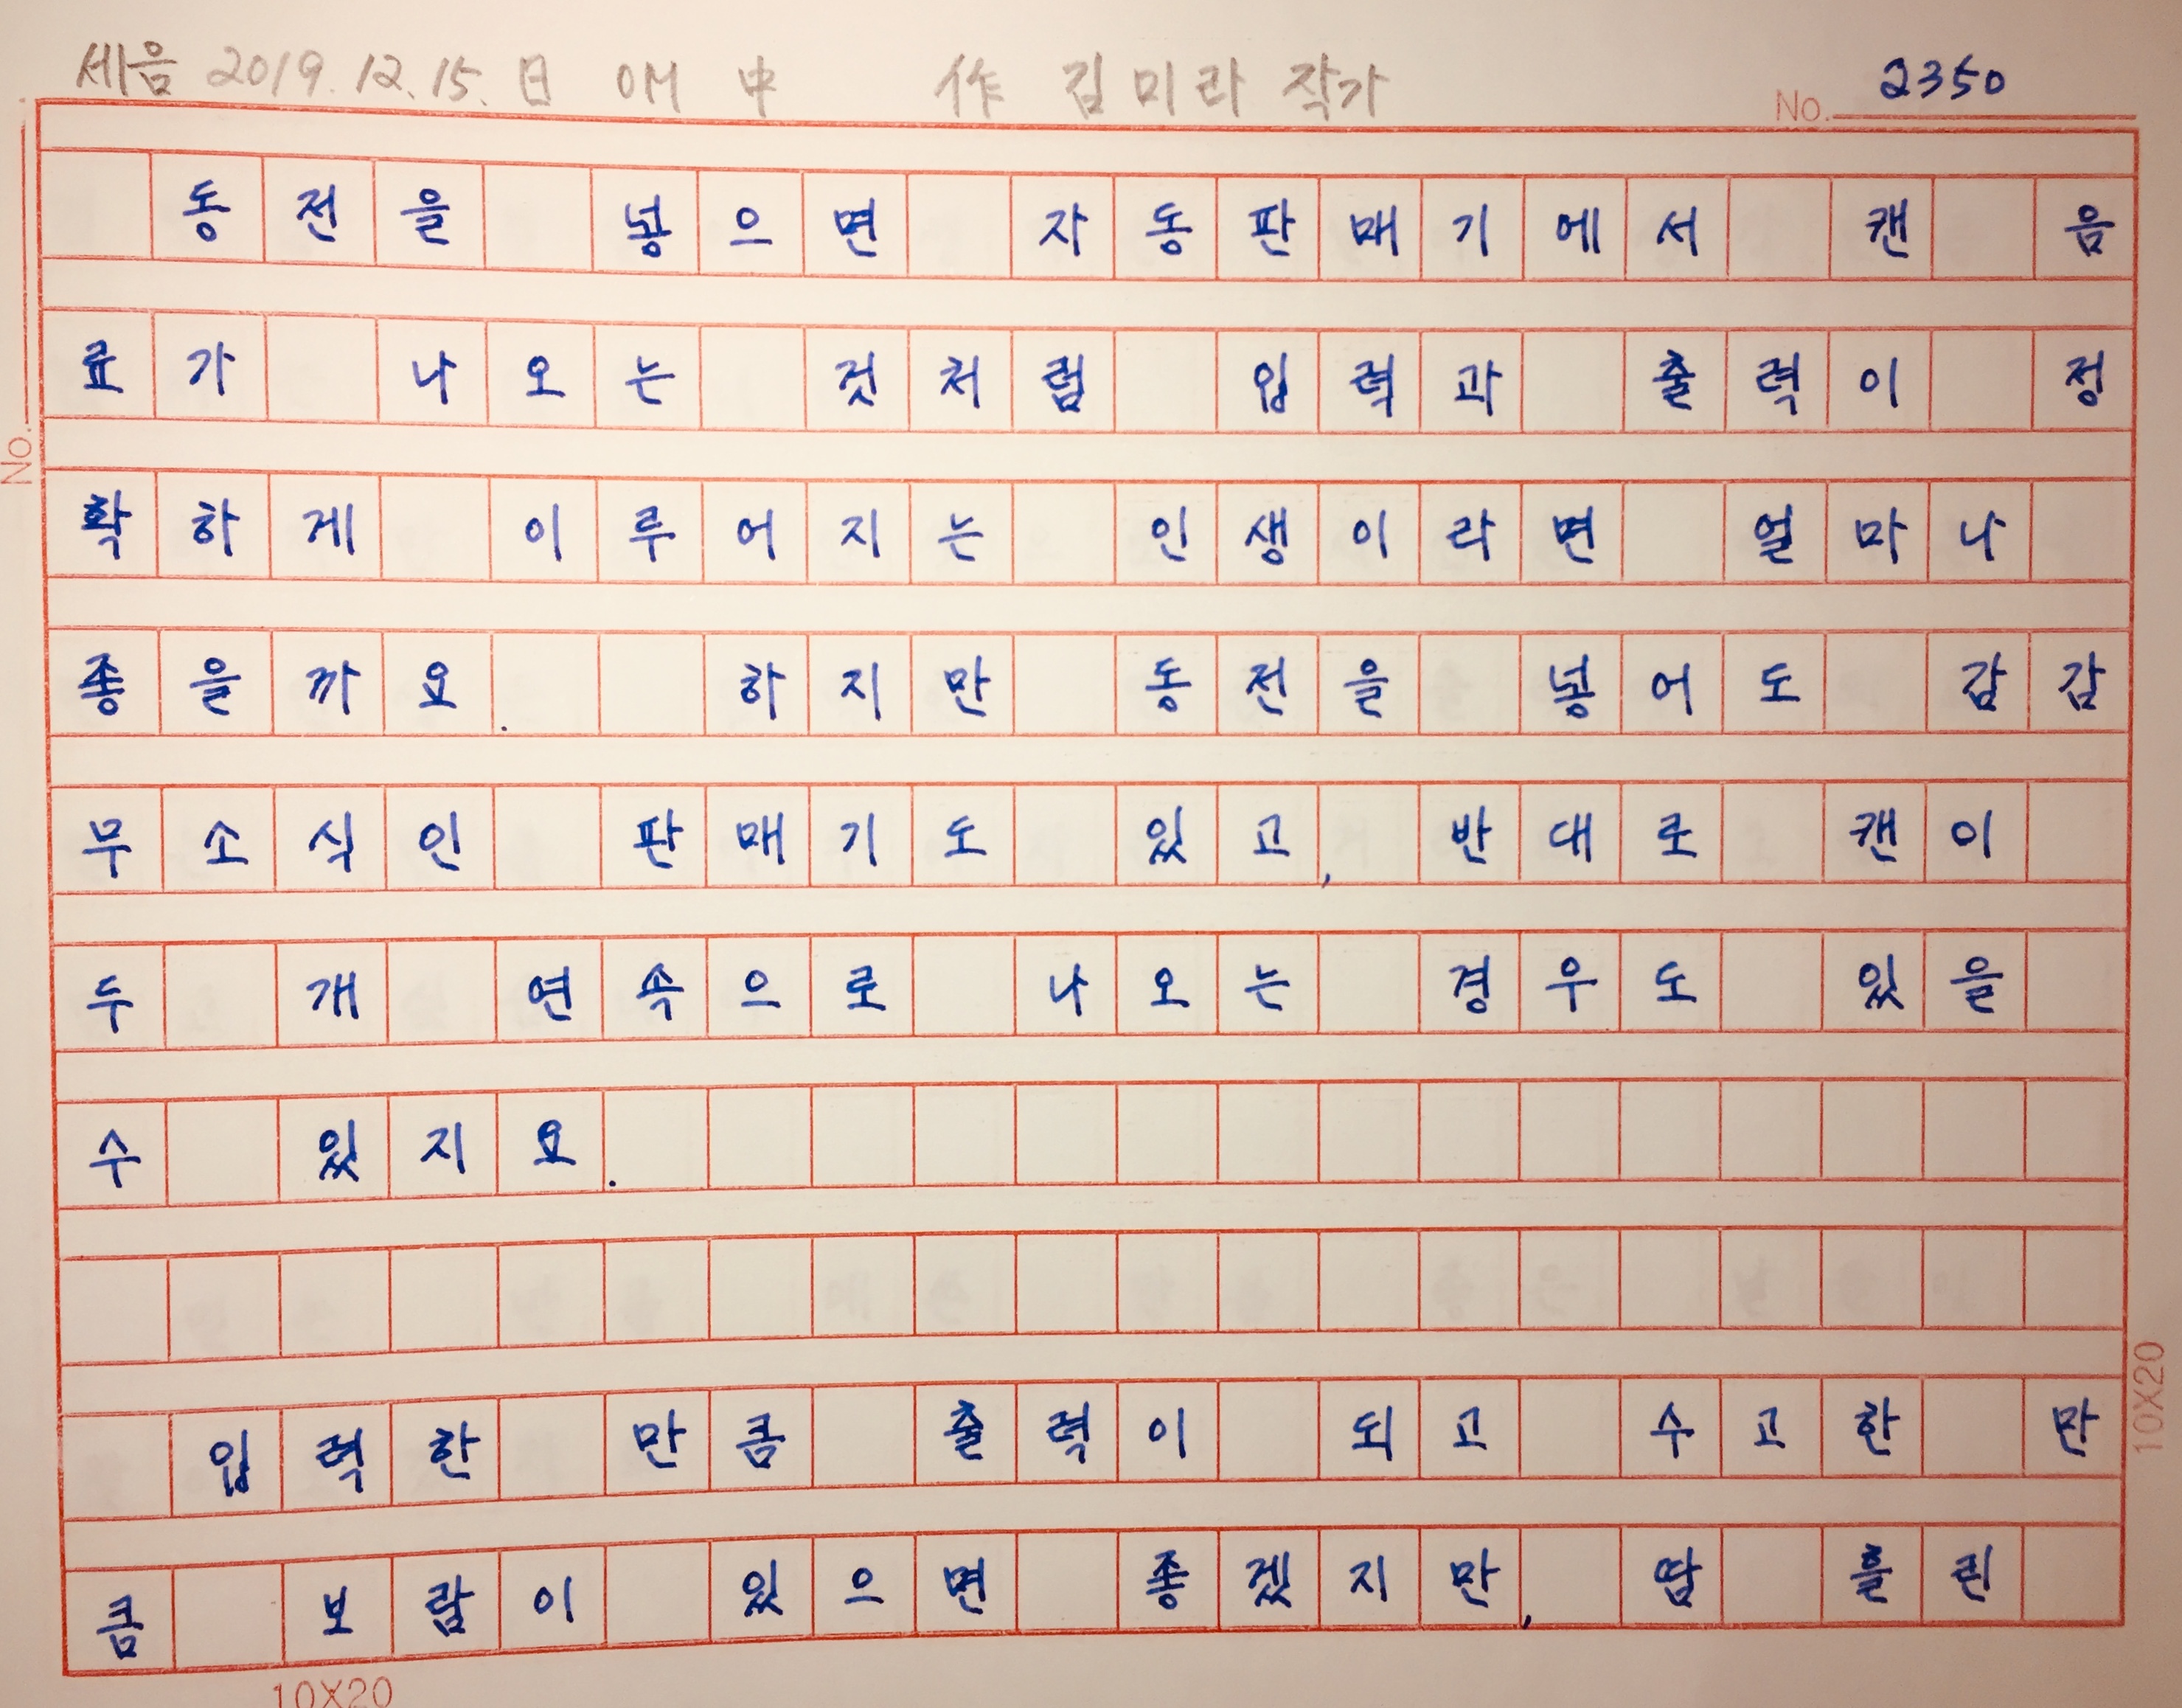 세음 2019.12.15. 日 애 中 作 김미라 작가
No. 2350
동전을 넣으면 자동판매기에서 캔 음
료가 나오는 것처럼 입력과 출력이 정
No.
확하게 이루어지는 인생이라면 얼마나
좋을까요. 하지만 동전을 넣어도 감감
무소식인 판매기도 있고, 반대로 캔이
두 개 연속으로 나오는 경우도 있을
수 있지요.
입력한 만큼 출력이 되고 수고한 만
10X20
큼 보람이 있으면 좋겠지만, 땀 흘린
10X20